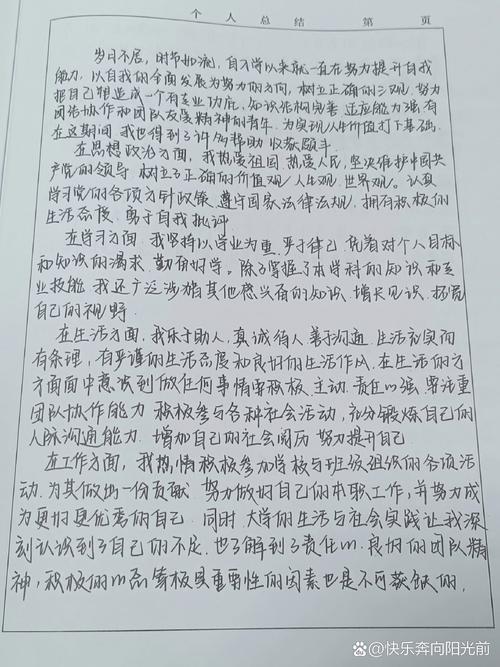 个人总结 第 页
岁月不居,时节如流,自入学以来就一直在努力提升自我
能力,以自我的全面发展为努力的方向,树立正确的三观,努力
把自己塑造成一个有专业功底,知识结构完善 适应能力强 有
团结协作和团队友爱精神的青年,为实现人生价值打下基础.
在这期间 我也得到了许多帮助 收获颇丰
在思想政治方面,我热爱祖国 热爱人民,坚决维护中国共
产党的领导 树立了正确的价值观 人生观,世界观。认真
学习党的各项方针政策 遵守国家法律法规,拥有积极的
生活态度 勇于自我批评
在学习方面,我坚持以学业为重,严于律己 凭着对个人目标
和知识的渴求,勤奋好学。除了掌握了本学科的知识和专
业技能 我还广泛涉猎其他感兴奋的知识,增长见识,拓宽
自己的视野.
在生活方面,我乐于助人,真诚待人 善于沟通 生活充实而
有条理,有严谨的生活态度和良好的生活作风,在生活的方
方面面中意识到做任何事情要积极 主动 责任心强 要注重
团队协作能力 积极参与各种社会活动,充分锻炼自己的
人脉沟通能力 增加自己的社会阅历 努力提升自己
在工作方面,我热情积极参加学校与班级组织的各项活
动.为其做出一份贡献 努力做好自己的本职工作,并努力成
为更好更优秀的自己 同时 大学的生活与社会实践让我深
刻认识到了自己的不足.也了解到了责任心,良好的团队精
神,积极的心态等极具重要性的因素也是不可获缺的,
快乐奔向阳光前